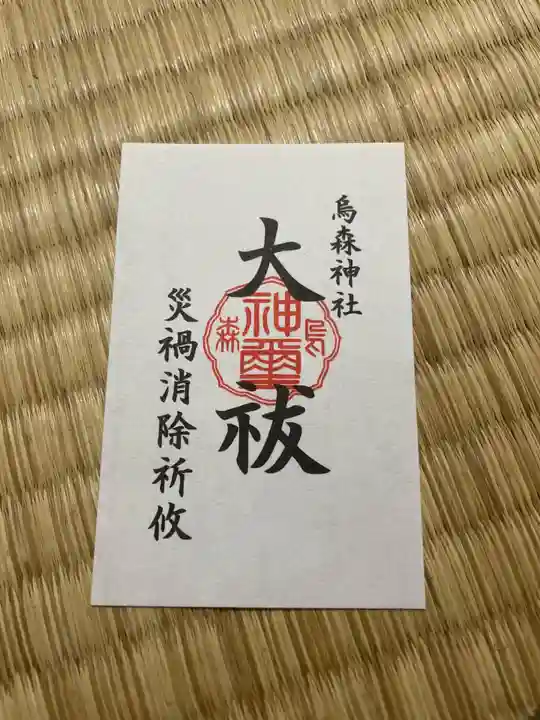 烏森神社
大祓
神璽
烏
森
災禍消除祈攸